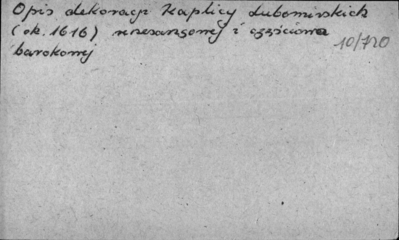 Opis dekoracji Kaplicy Lubomirskich
(ok. 1616) renesansowej i częściowo
10/720
barokowej